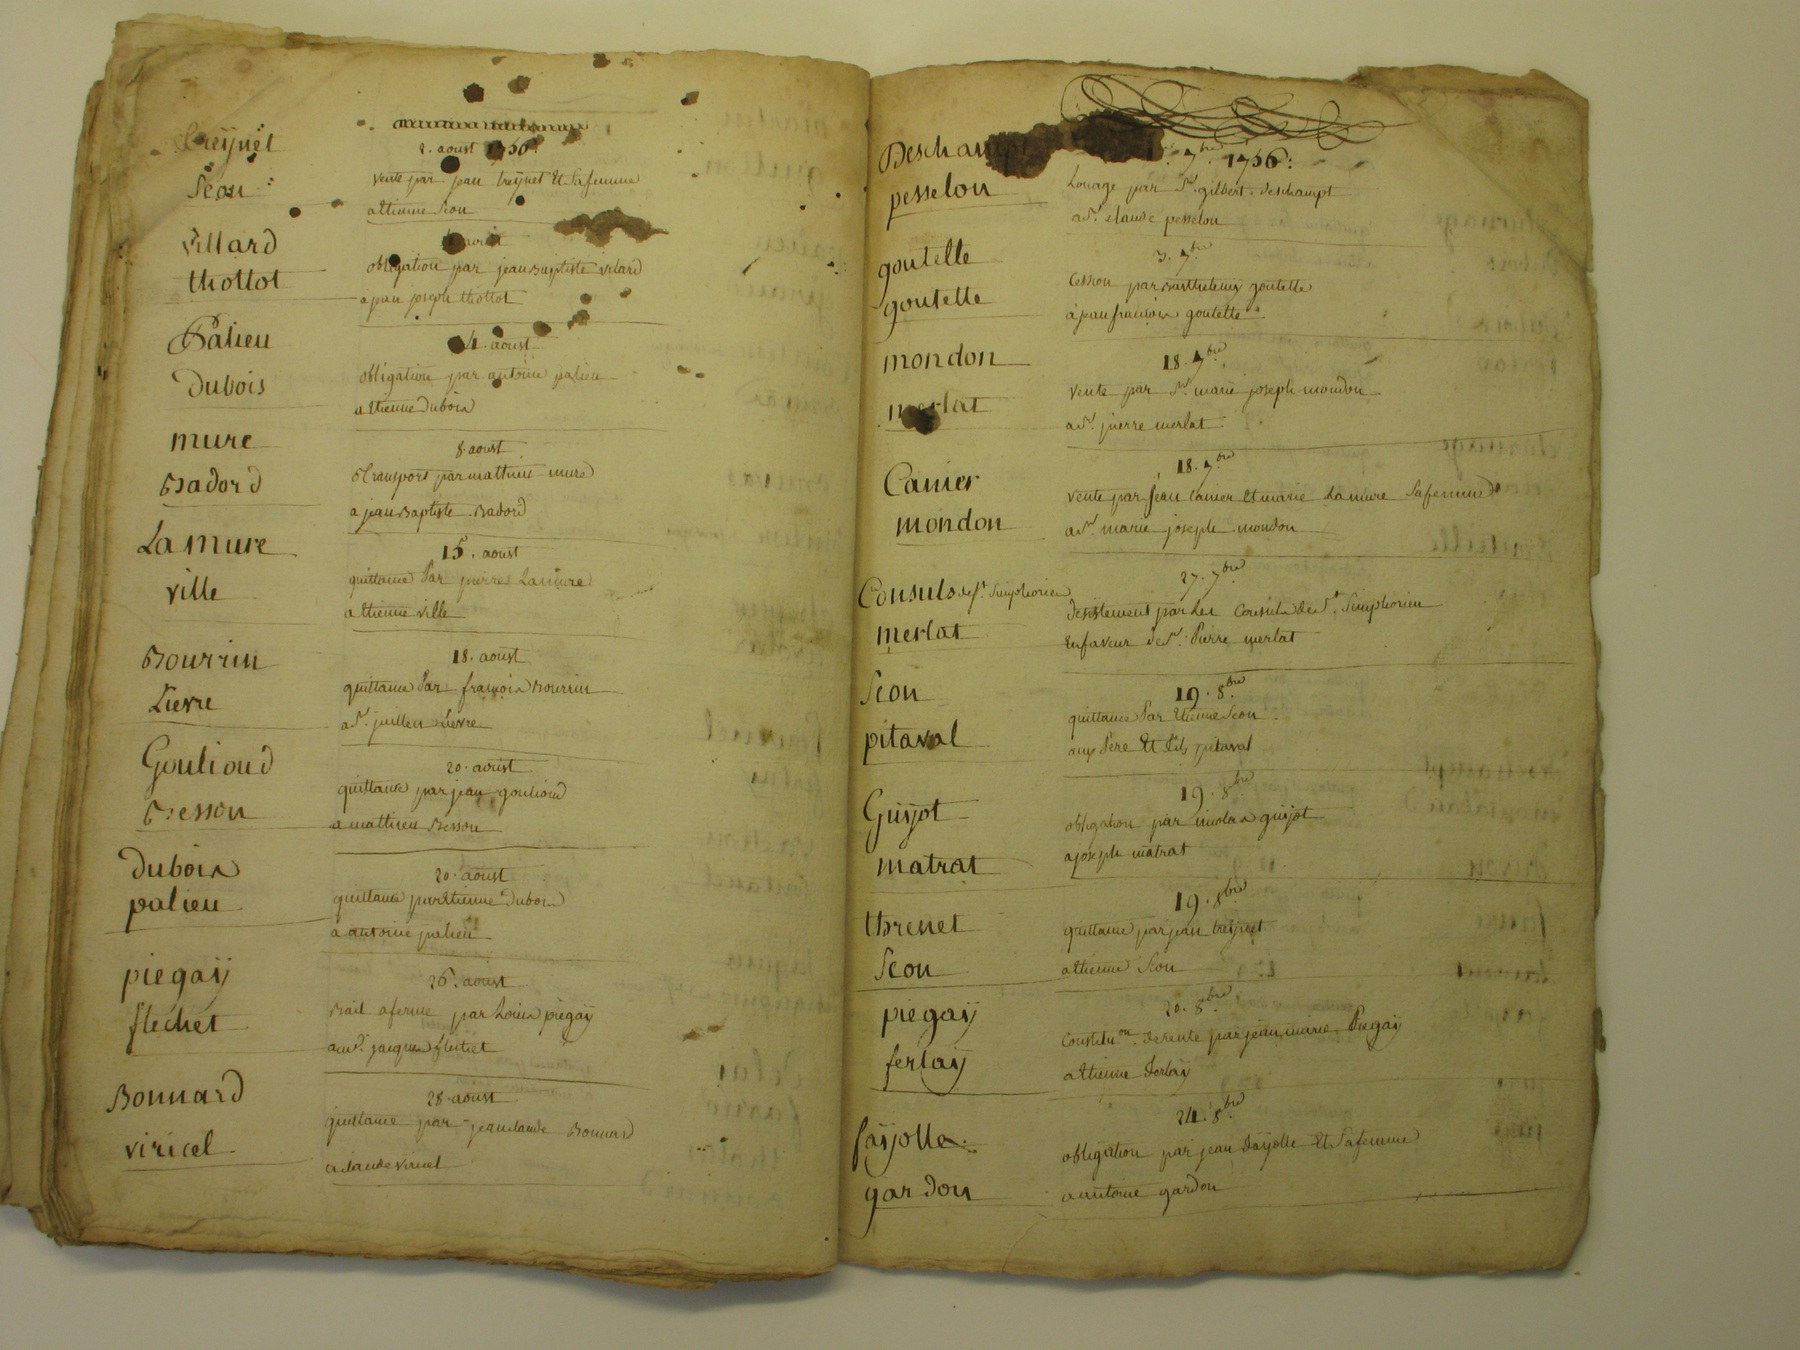 treÿnet
Seon
2. aoust 1756:
vente par jean treÿnet Et Safemme
a Etienne Seon
villard
thollot
aoust
obligation par jean Baptiste vilard
a jean joseph thollot
Palieu
Dubois
4. aoust
obligation par antoine palieu
a Etienne Dubois
mure
Badord
8. aoust
Transport par mathieu mure
a jean Baptiste Badord
La mure
ville
15. aoust
quittance Par pierre Lamure
a Etienne ville
Bourrin
Lievre
18. aoust
quittance Par françois Bourrin
a Sr. jullien Lievre
Goulioud
Besson
20. aoust
quittance par jean goulioud
a mathieu Besson
Dubois
palieu
20. aoust
quittance par Etienne Dubois
a antoine palieu
piegaÿ
flechet
26. aoust
Bail aferme par Louis piegaÿ
a jacques flechet
Bonnard
viricel
28. aoust
quittance par jean claude Bonnard
a claude viricel
Deschampt
pesselon
7bre. 1756:
Louage par Sr. gilbert Deschampt
a Sr. claude pesselon
goutelle
goutelle
3. 7bre
Cession par Barthelemy goutelle
à jean françois goutelle
mondon
merlat
18. 7bre
vente par Sr. marie joseph mondon
a Sr. pierre merlat
Canier
mondon
18. 7bre
vente par jean Canier Et marie La mure Safemme
a Sr. marie joseph mondon
Consuls de St. Simphorien
merlat
27. 7bre
Desistement par Les Consuls de St. Simphorien
En faveur de Sr. Pierre merlat
Seon
pitaval
19. 8bre
quittance Par Etienne Seon
aux Pere Et fils pitaval
Guÿot
matrat
19. 8bre
obligation par nicolas guÿot
a joseph matrat
threnet
Seon
19. 8bre
quittance par jean treÿnet
a Etienne Seon
piegaÿ
ferlaÿ
20. 8bre
Constitu.on de rente par jean marie Piegaÿ
a Etienne ferlaÿ
faÿolle
gardon
24. 8bre
obligation par jean faÿolle Et Safemme
a antoine gardon